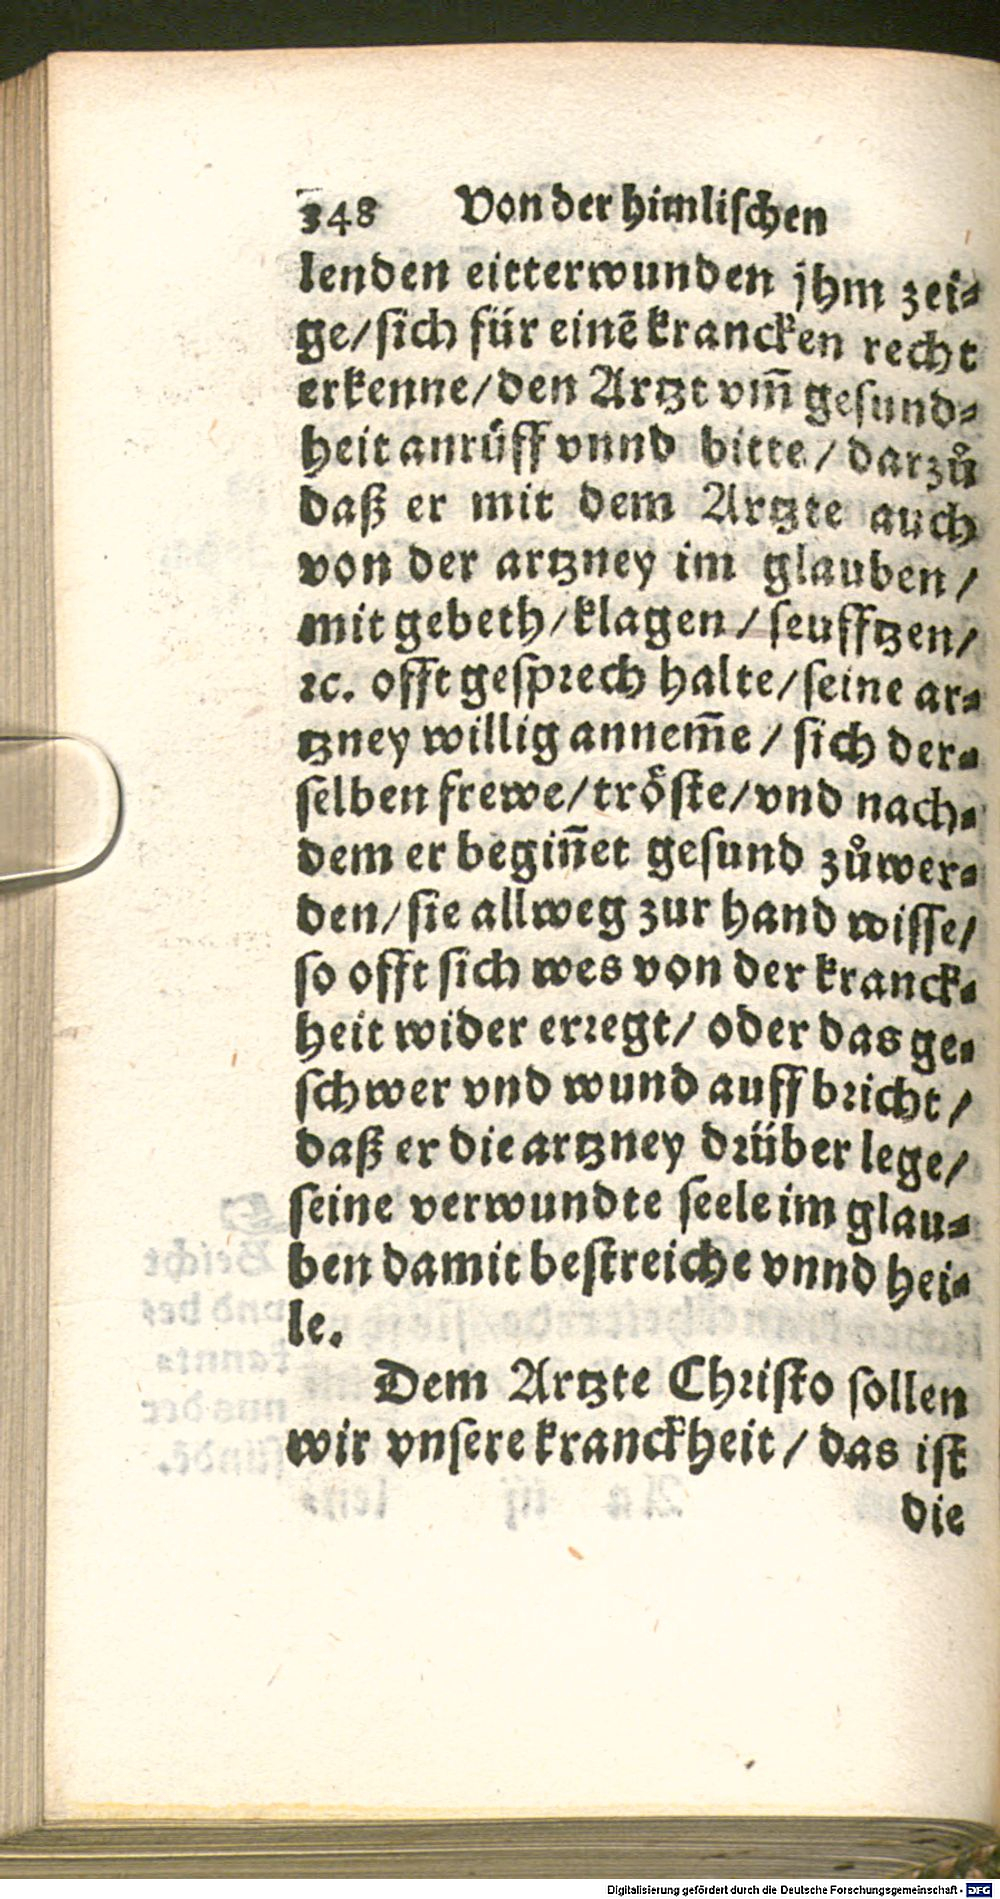 348 Von der himlischen
lenden eitterwunden jhm zei⸗
ge/ sich für einē krancken recht
erkenne/ den Artzt vm̄ gesund⸗
heit anrüff vnnd bitte/ darzů
daß er mit dem Artzte auch
von der artzney im glauben/
mit gebeth/ klagen/ seufftzen/
ꝛc. offt gesprech halte/ seine ar⸗
tzney willig annem̄e/ sich der⸗
selben frewe/ tröste/ vnd nach⸗
dem er begin̄et gesund zůwer⸗
den/ sie allweg zur hand wisse/
so offt sich wes von der kranck⸗
heit wider erregt/ oder das ge⸗
schwer vnd wund auff bricht/
daß er die artzney drüber lege/
seine verwundte seele im glau⸗
ben damit bestreiche vnnd hei⸗
le.
Dem Artzte Christo sollen
wir vnsere kranckheit/ das ist
die
Digitalisierung gefördert durch die Deutsche Forschungsgemeinschaft - DFG